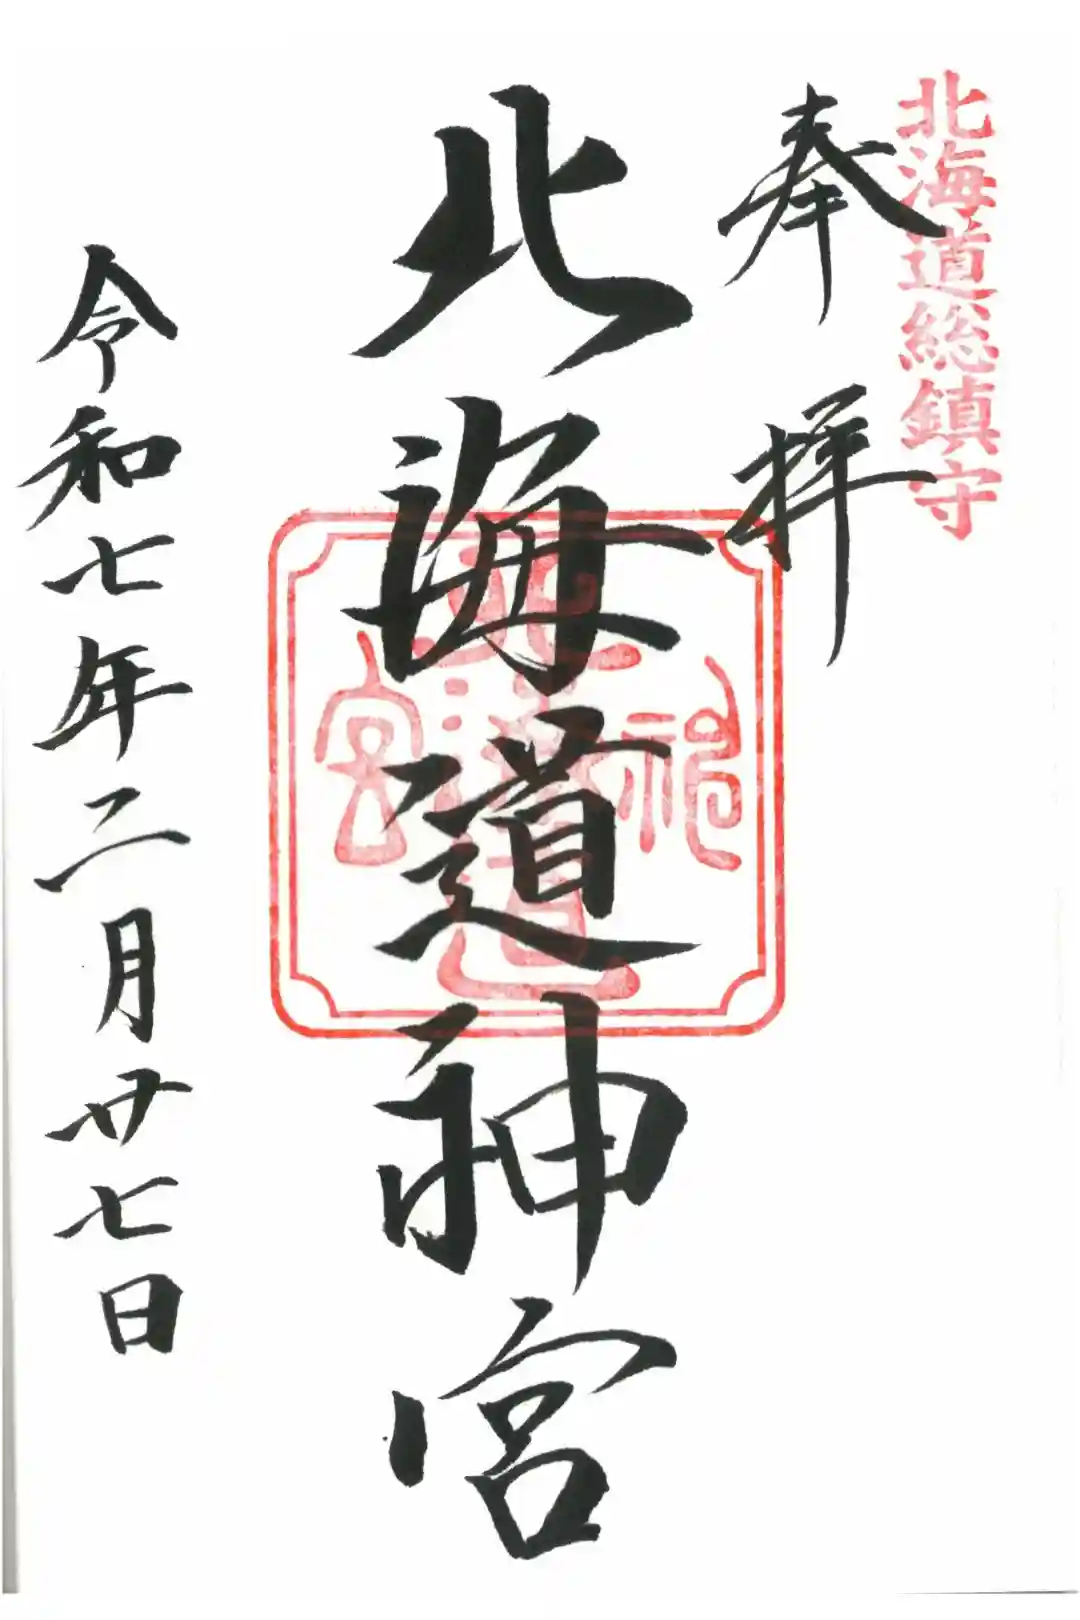 北海道総鎮守
奉拝
北海道神宮
令和七年二月廿七日